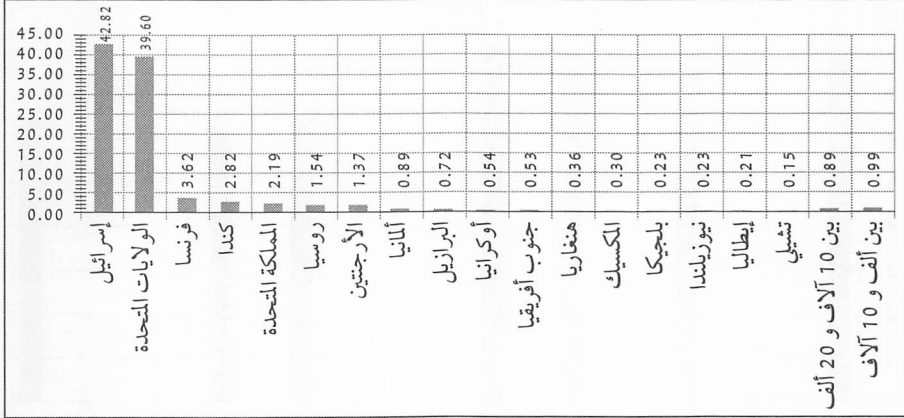 45.00
40.00
35.00
30.00
25.00
20.00
15.00
10.00
5.00
0.00
42.82
39.60
3.62
2.82
2.19
1.54
1.37
0.89
0.72
0.54
0.53
0.36
0.30
0.23
0.23
0.21
0.15
0.89
0.99
إسرائيل
الولايات المتحدة
فرنسا
كندا
المملكة المتحدة
روسيا
الأرجنتين
ألمانيا
البرازيل
أوكرانيا
جنوب أفريقيا
هنغاريا
المكسيك
بلجيكا
نيوزيلندا
إيطاليا
تشيلي
بين 10 آلاف و 20 ألف
بين ألف و 10 آلاف